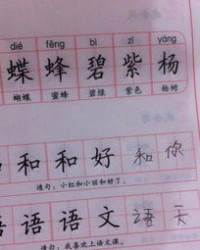 dié fēng bì zǐ yáng
蝶 蜂 碧 紫 杨
蝴蝶 蜜蜂 碧绿 紫色 杨树
和 和 好 和 你
造句：小红和小丽和好了。
语 语 文 语 天
造句：我喜欢上语文课。